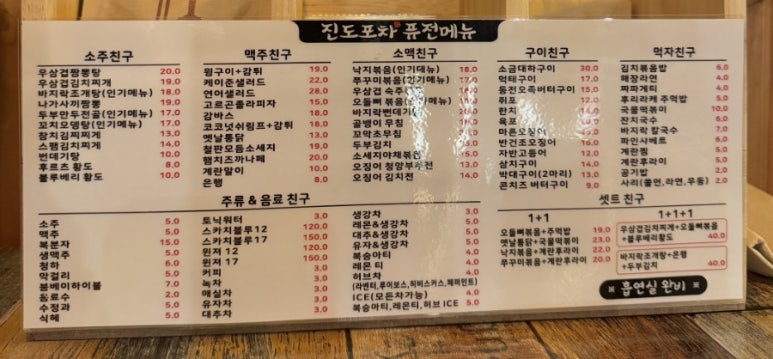 진도포차 퓨전메뉴
소주친구
우삼겹짬뽕탕 20.0
우삼겹김치찌개 19.0
바지락조개탕(인기메뉴) 18.0
나가사끼짬뽕 19.0
두부만두전골(인기메뉴) 17.0
꼬치오뎅탕(인기메뉴) 17.0
참치김치찌개 13.0
스팸김치찌개 14.0
번데기탕 10.0
후르츠 황도 8.0
블루베리 황도 10.0
맥주친구
윙구이+감튀 19.0
케이준샐러드 22.0
연어샐러드 28.0
고르곤졸라피자 15.0
감바스 18.0
코코넛쉬림프+감튀 18.0
옛날통닭 13.0
철판모듬소세지 19.0
햄치즈까나페 20.0
계란말이 10.0
은행 8.0
소맥친구
낙지볶음(인기메뉴) 18.0
쭈꾸미볶음(인기메뉴) 17.0
우삼겹 숙주
오돌뼈 볶음
바지락번데기
골뱅이 무침
꼬막초무침
두부김치
소세지야채볶음
오징어 청양부추전 13.0
오징어 김치전 14.0
구이친구
소금대하구이 30.0
먹태구이 17.0
통전오족버터구이 15.0
쥐포 12.0
한치
육포
마른오징어
반건조오징어
자반고등어 12.0
삼치구이 14.0
박대구이(2마리) 13.0
콘치즈 버터구이 9.0
먹자친구
김치볶음밥 6.0
해장라면 4.0
짜파게티 4.0
후리라케 주먹밥 5.0
국물떡볶이 10.0
잔치국수 5.0
바지락 칼국수 7.0
파인샤베트 6.0
계란찜 5.0
계란후라이 5.0
공기밥 2.0
사리(쫄면,라면,우동) 2.0
주류 & 음료 친구
소주 5.0
맥주 5.0
복분자 15.0
생맥주 5.0
청하 6.0
막걸리 5.0
봄베이하이볼 7.0
음료수 2.0
수정과 5.0
식혜 5.0
토닉워터 3.0
스카치블루12 120.0
스카치블루17 150.0
윈저 12 120.0
윈저 17 150.0
커피 3.0
녹차 3.0
매실차 3.0
유자차 3.0
대추차 3.0
생강차 3.0
레몬&생강차 5.0
대추&생강차 5.0
유자&생강차 5.0
복숭아티 4.0
레몬 티 4.0
허브차 4.0
(라벤터,루이보스,히비스커스,페퍼민트)
ICE(모든차가능) 4.0
복숭아티,레몬티,허브 ICE 5.0
셋트 친구
1+1
오돌뼈볶음+주먹밥 19.0
옛날통닭+국물떡볶이 23.0
낙지볶음+계란후라이 22.0
쭈꾸미볶음+계란후라이 20.0
1+1+1
우삼겹김치찌개+오돌뼈볶음
+블루베리황도 40.0
바지락조개탕+은행
+두부김치 40.0
흡연실 완비